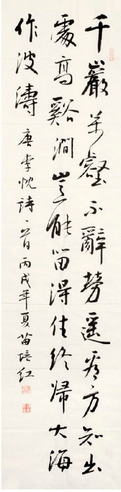 千巖萬壑不辭勞遠看方知出
處高谿澗豈能留得住終歸大海
作波濤
唐李忱詩一首丙戌年夏苗培红